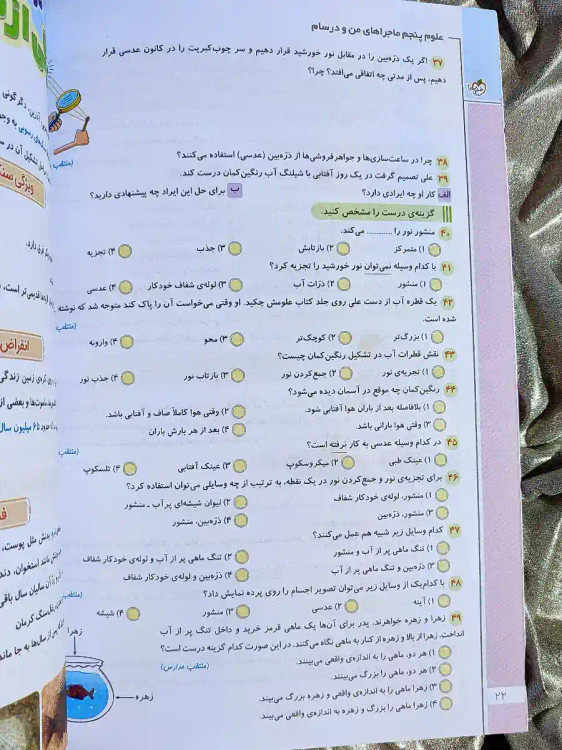 علوم پنجم ماجراهای من و درسام
۳۷ اگر یک ذره‌بین را در مقابل نور خورشید قرار دهیم و سر چوب‌کبریت را در کانون عدسی قرار
دهیم، پس از مدتی چه اتفاقی می‌افتد؟ چرا؟
۳۸ چرا در ساعت‌سازی‌ها و جواهرفروشی‌ها از ذره‌بین (عدسی) استفاده می‌کنند؟
(منتخب)
۳۹ علی تصمیم گرفت در یک روز آفتابی با شیلنگ آب رنگین‌کمان درست کند.
الف کار او چه ایرادی دارد؟ ب برای حل این ایراد چه پیشنهادی دارید؟
گزینه‌ی درست را مشخص کنید.
۴۰ منشور نور را ........... می‌کند.
۱) متمرکز ۲) بازتابش ۳) جذب ۴) تجزیه
۴۱ با کدام وسیله نمی‌توان نور خورشید را تجزیه کرد؟
۱) منشور ۲) ذرّات آب ۳) لوله‌ی شفاف خودکار ۴) عدسی
۴۲ یک قطره آب از دست علی روی جلد کتاب علومش چکید. او وقتی می‌خواست آن را پاک کند متوجه شد که نوشته ..........
شده است. (منتخب)
۱) بزرگ‌تر ۲) کوچک‌تر ۳) محو ۴) وارونه
۴۳ نقش قطرات آب در تشکیل رنگین‌کمان چیست؟
۱) تجزیه‌ی نور ۲) جمع‌کردن نور ۳) بازتاب نور ۴) جذب نور
۴۴ رنگین‌کمان چه موقع در آسمان دیده می‌شود؟
۱) بلافاصله بعد از باران هوا آفتابی شود. ۲) وقتی هوا کاملاً صاف و آفتابی باشد.
۳) وقتی هوا بارانی باشد. ۴) بعد از هر بارش باران
۴۵ در کدام وسیله عدسی به کار نرفته است؟ (منتخب)
۱) عینک طبی ۲) میکروسکوپ ۳) عینک آفتابی ۴) تلسکوپ
۴۶ برای تجزیه‌ی نور و جمع‌کردن نور در یک نقطه، به ترتیب از چه وسایلی می‌توان استفاده کرد؟
۱) منشور، لوله‌ی خودکار شفاف ۲) لیوان شیشه‌ای پر آب ـ منشور
۳) منشور، ذره‌بین ۴) ذره‌بین، منشور
۴۷ کدام وسایل زیر شبیه هم عمل می‌کنند؟
۱) تنگ ماهی پر از آب و منشور ۲) تنگ ماهی پر از آب و لوله‌ی خودکار شفاف
۳) ذره‌بین و تنگ ماهی پر از آب ۴) ذره‌بین و لوله‌ی خودکار شفاف
۴۸ با کدام‌یک از وسایل زیر می‌توان تصویر اجسام را روی پرده نمایش داد؟ (منتخب)
۱) آینه ۲) عدسی ۳) منشور ۴) شیشه
۴۹ زهرا و زهره خواهرند. پدر برای آن‌ها یک ماهی قرمز خرید و داخل تنگ پر از آب
انداخت. زهرا از بالا و زهره از کنار به ماهی نگاه می‌کنند. در این صورت کدام گزینه درست است؟
(منتخب مدارس)
۱) هر دو، ماهی را به اندازه‌ی واقعی می‌بینند.
۲) هر دو، ماهی را بزرگ می‌بینند.
۳) زهرا ماهی را به اندازه‌ی واقعی و زهره بزرگ می‌بیند.
۴) زهرا ماهی را بزرگ و زهره به اندازه‌ی واقعی می‌بیند.
زهرا
زهره
۲۲
ویژگی سنگ
انقراض
۶۵ میلیون سال